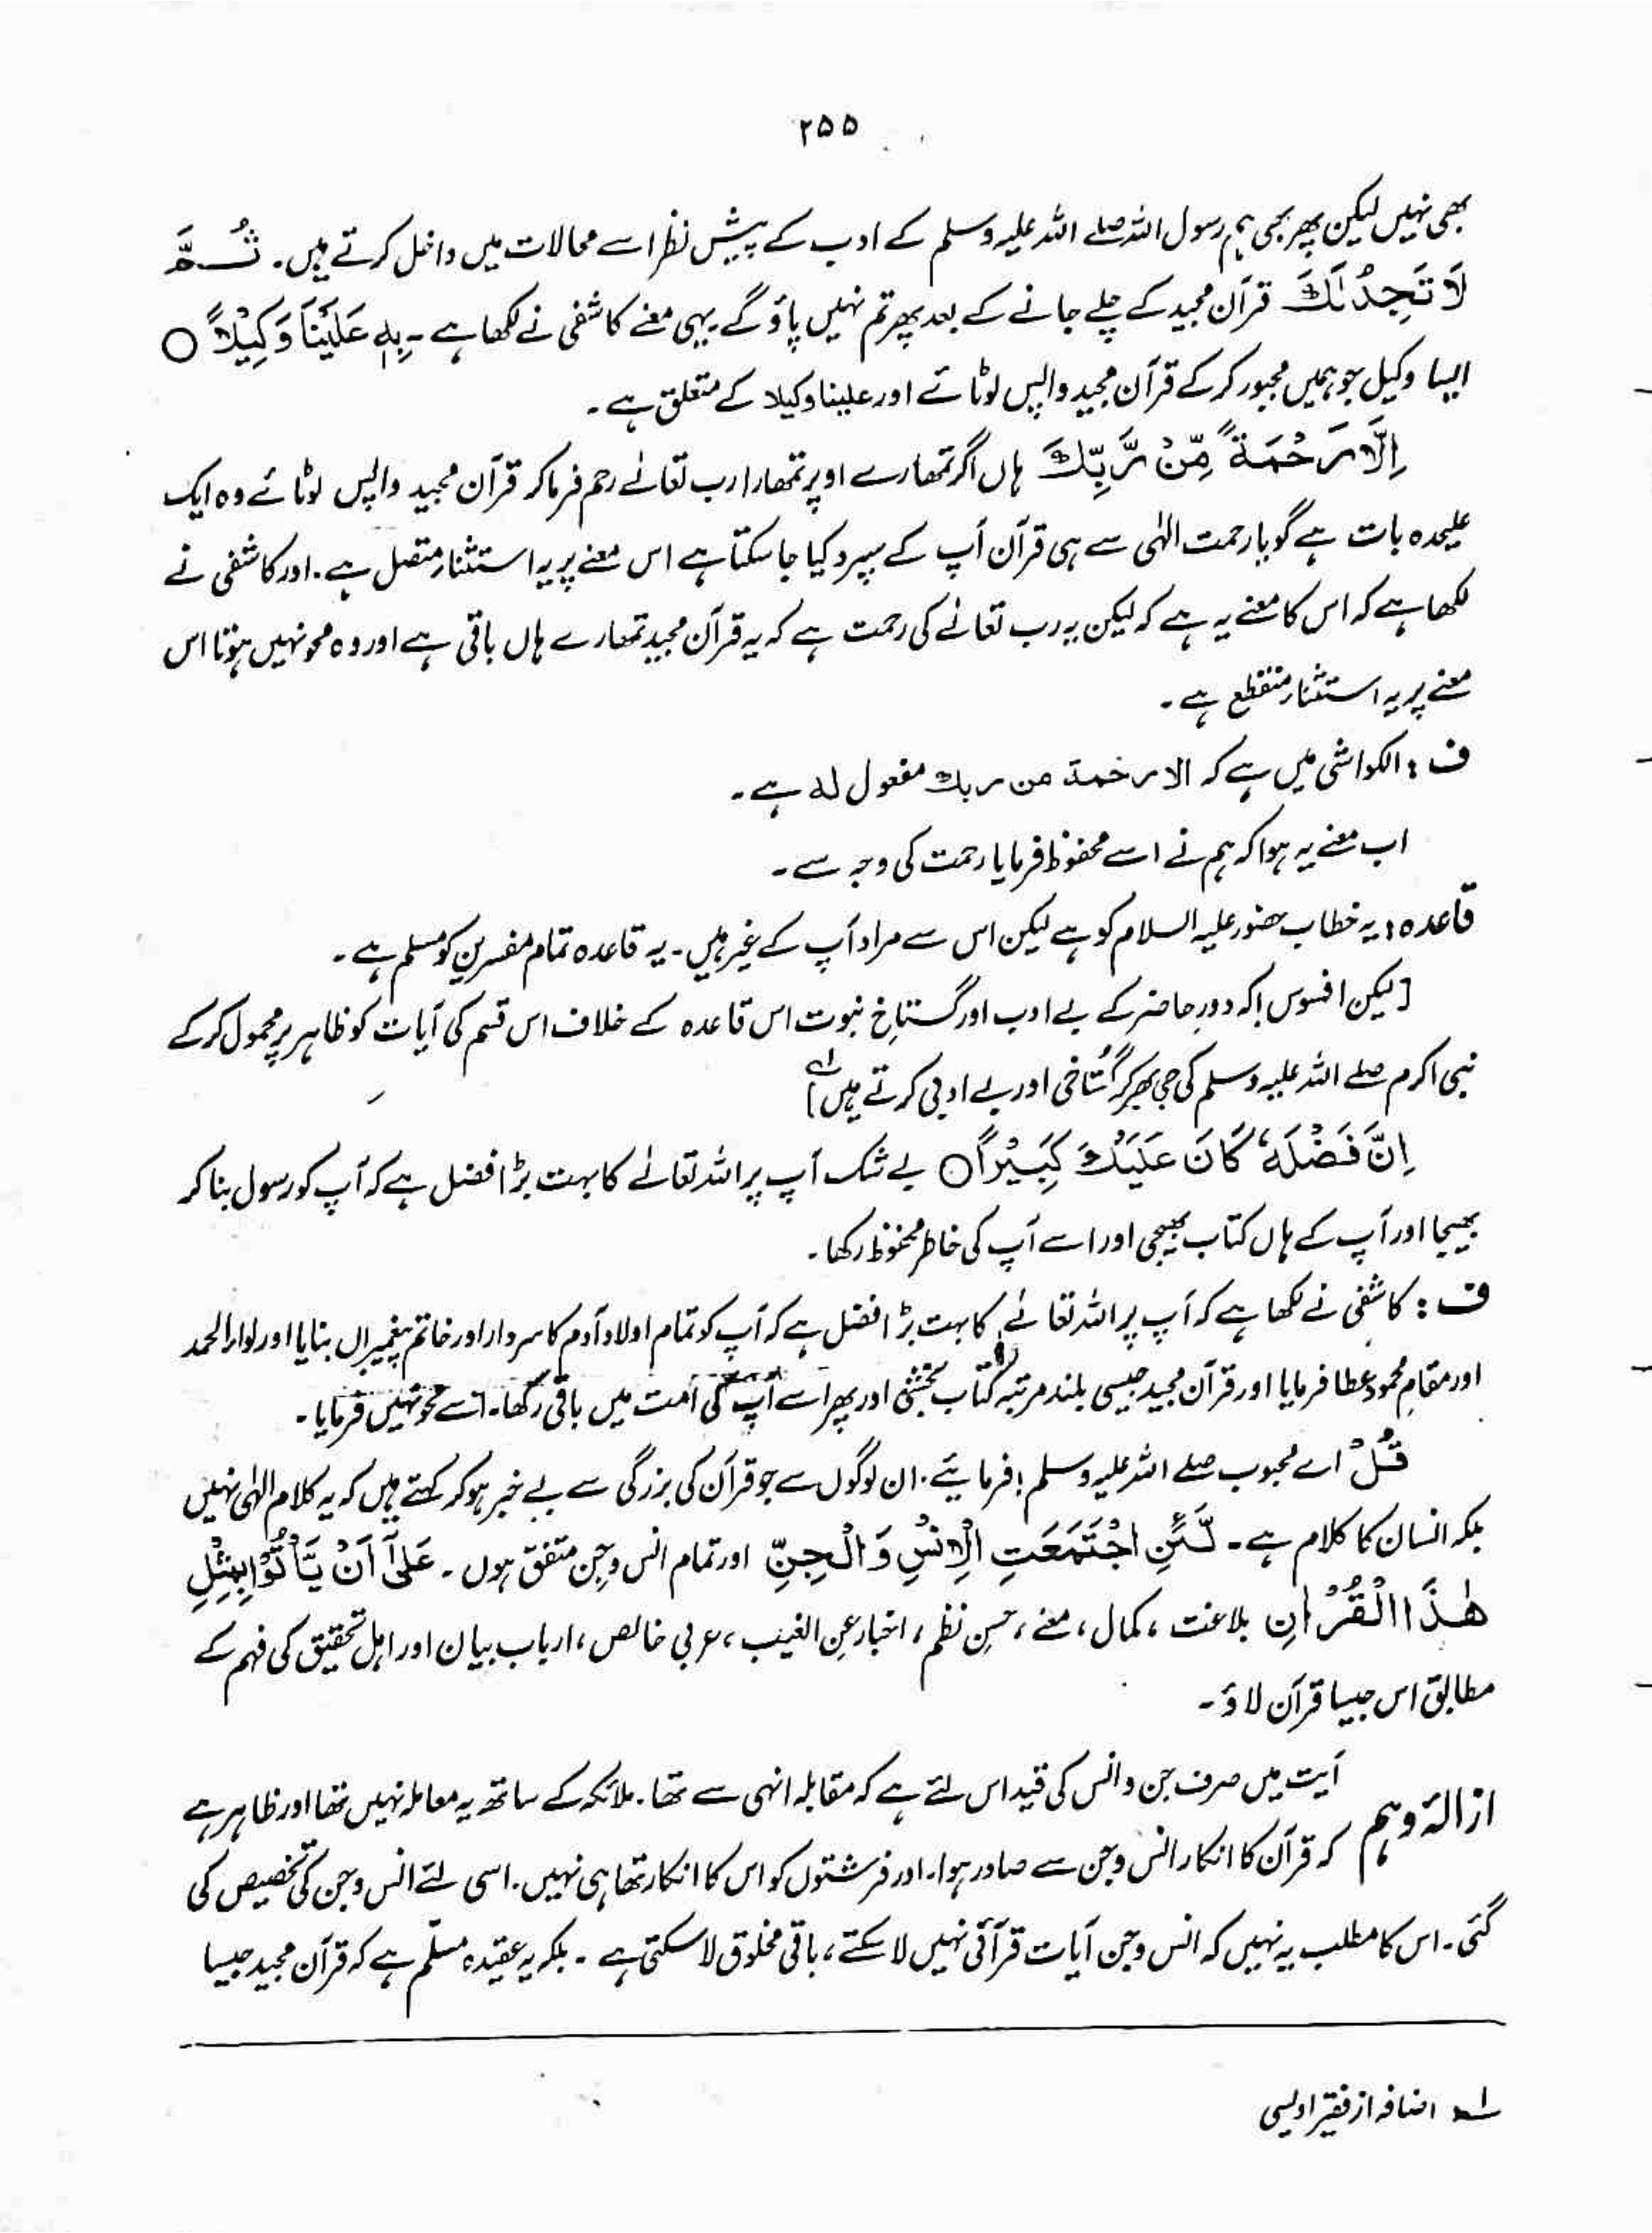 ۲۵۵
بھی نہیں لیکن پھر بھی ہم رسول اللہ صلے اللہ علیہ وسلم کے ادب کے پیش نظر اسے محالات میں داخل کرتے ہیں۔ ثُمَّ
لَا تَجِدُ لَكَ قرآن مجید کے چلے جانے کے بعد پھر تم نہیں پاؤ گے یہی معنے کاشفی نے لکھا ہے ۔ بِهٖ عَلَيْنَا وَكِيْلًا ○
ایسا وکیل جو ہمیں مجبور کر کے قرآن مجید واپس لوٹائے اور علینا وکیلا کے متعلق ہے ۔
اِلَّا رَحْمَةً مِّنْ رَّبِّكَ ہاں اگر تمھارے اوپر تمھارا رب تعالٰے رحم فرما کر قرآن مجید واپس لوٹائے وہ ایک
علیحدہ بات ہے گویا رحمت الٰہی سے ہی قرآن آپ کے سپرد کیا جا سکتا ہے اس معنے پر یہ استثنار متصل ہے ۔ اور کاشفی نے
لکھا ہے کہ اس کا معنے یہ ہے کہ لیکن یہ رب تعالٰے کی رحمت ہے کہ یہ قرآن مجید تمھارے ہاں باقی ہے اور وہ محو نہیں ہوتا اس
معنے پر یہ استثنار منقطع ہے ۔
ف : الکواشی میں ہے کہ الا رحمة من ربك مفعول لہ ہے ۔
اب معنے یہ ہوا کہ ہم نے اسے محفوظ فرمایا رحمت کی وجہ سے ۔
قاعدہ : یہ خطاب حضور علیہ السلام کو ہے لیکن اس سے مراد آپ کے غیر ہیں ۔ یہ قاعدہ تمام مفسرین کو مسلم ہے ۔
[لیکن افسوس! کہ دورِ حاضر کے بے ادب اور گستاخِ نبوت اس قاعدہ کے خلاف اس قسم کی آیات کو ظاہر پر محمول کر کے
نبی اکرم صلے اللہ علیہ وسلم کی جی بھر کر گُستاخی اور بے ادبی کرتے ہیں] ؎۱
اِنَّ فَضْلَهٗ كَانَ عَلَيْكَ كَبِيْرًا ○ بے شک آپ پر اللہ تعالٰے کا بہت بڑا فضل ہے کہ آپ کو رسول بنا کر
بھیجا اور آپ کے ہاں کتاب بھیجی اور اسے آپ کی خاطر محفوظ رکھا ۔
ف : کاشفی نے لکھا ہے کہ آپ پر اللہ تعالٰے کا بہت بڑا فضل ہے کہ آپ کو تمام اولاد آدم کا سردار اور خاتم پیغمبراں بنایا اور لواء الحمد
اور مقامِ محمود عطا فرمایا اور قرآن مجید جیسی بلند مرتبہ کتاب بخشی اور پھر اسے آپ کی امت میں باقی رکھا۔ اسے محو نہیں فرمایا ۔
قُلْ اے محبوب صلے اللہ علیہ وسلم ! فرمائیے ۔ ان لوگوں سے جو قرآن کی بزرگی سے بے خبر ہو کر کہتے ہیں کہ یہ کلام الٰہی نہیں
بلکہ انسان کا کلام ہے ۔ لَّئِنِ اجْتَمَعَتِ الْاِنْسُ وَ الْجِنُّ اور تمام انس و جن متفق ہوں ۔ عَلٰٓى اَنْ يَّاْتُوْا بِمِثْلِ
هٰذَا الْقُرْاٰنِ بلاغت ، کمال ، معنے ، حسنِ نظم ، اخبار عن الغیب ، عربی خالص ، ارباب بیان اور اہل تحقیق کی فہم کے
مطابق اس جیسا قرآن لاؤ ۔
ازالۂ وہم آیت میں صرف جن و انس کی قید اس لئے ہے کہ مقابلہ انہی سے تھا ۔ ملائکہ کے ساتھ یہ معاملہ نہیں تھا اور ظاہر ہے
کہ قرآن کا انکار انس و جن سے صادر ہوا ۔ اور فرشتوں کو اس کا انکار تھا ہی نہیں ۔ اسی لئے انس و جن کی تخصیص کی
گئی ۔ اس کا مطلب یہ نہیں کہ انس و جن آیات قرآنی نہیں لا سکتے ، باقی مخلوق لا سکتی ہے ۔ بلکہ یہ عقیدہ مسلّم ہے کہ قرآن مجید جیسا
؎۱ اضافہ از فقیر اویسی